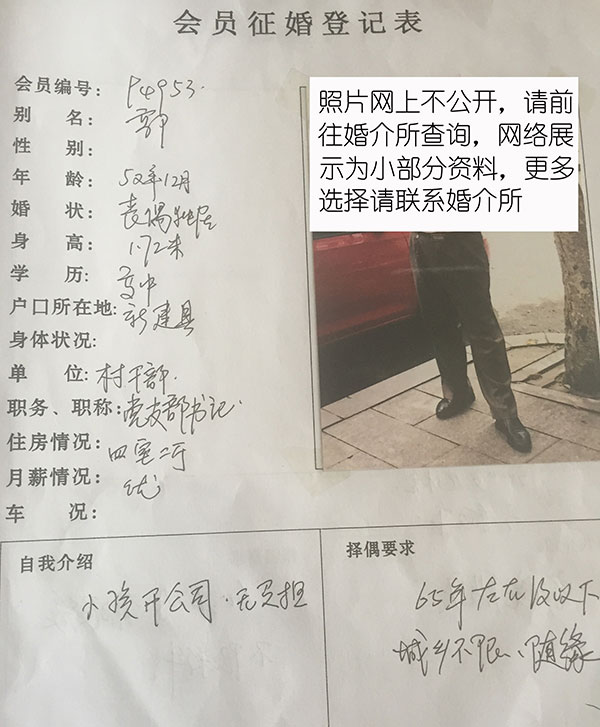 会员征婚登记表
会员编号: P4953.
别 名: 郭
性 别:
年 龄: 52年12月
婚 状: 丧偶独居
身 高: 1.72米
学 历: 高中
户口所在地: 新建县
身体状况:
单 位: 村干部.
职务、职称: 党支部书记
住房情况: 四室二厅
月薪情况: 优
车 况:
照片网上不公开，请前
往婚介所查询，网络展
示为小部分资料，更多
选择请联系婚介所
自我介绍
小孩开公司.无负担
择偶要求
65年左右及以下
城乡不限、随缘